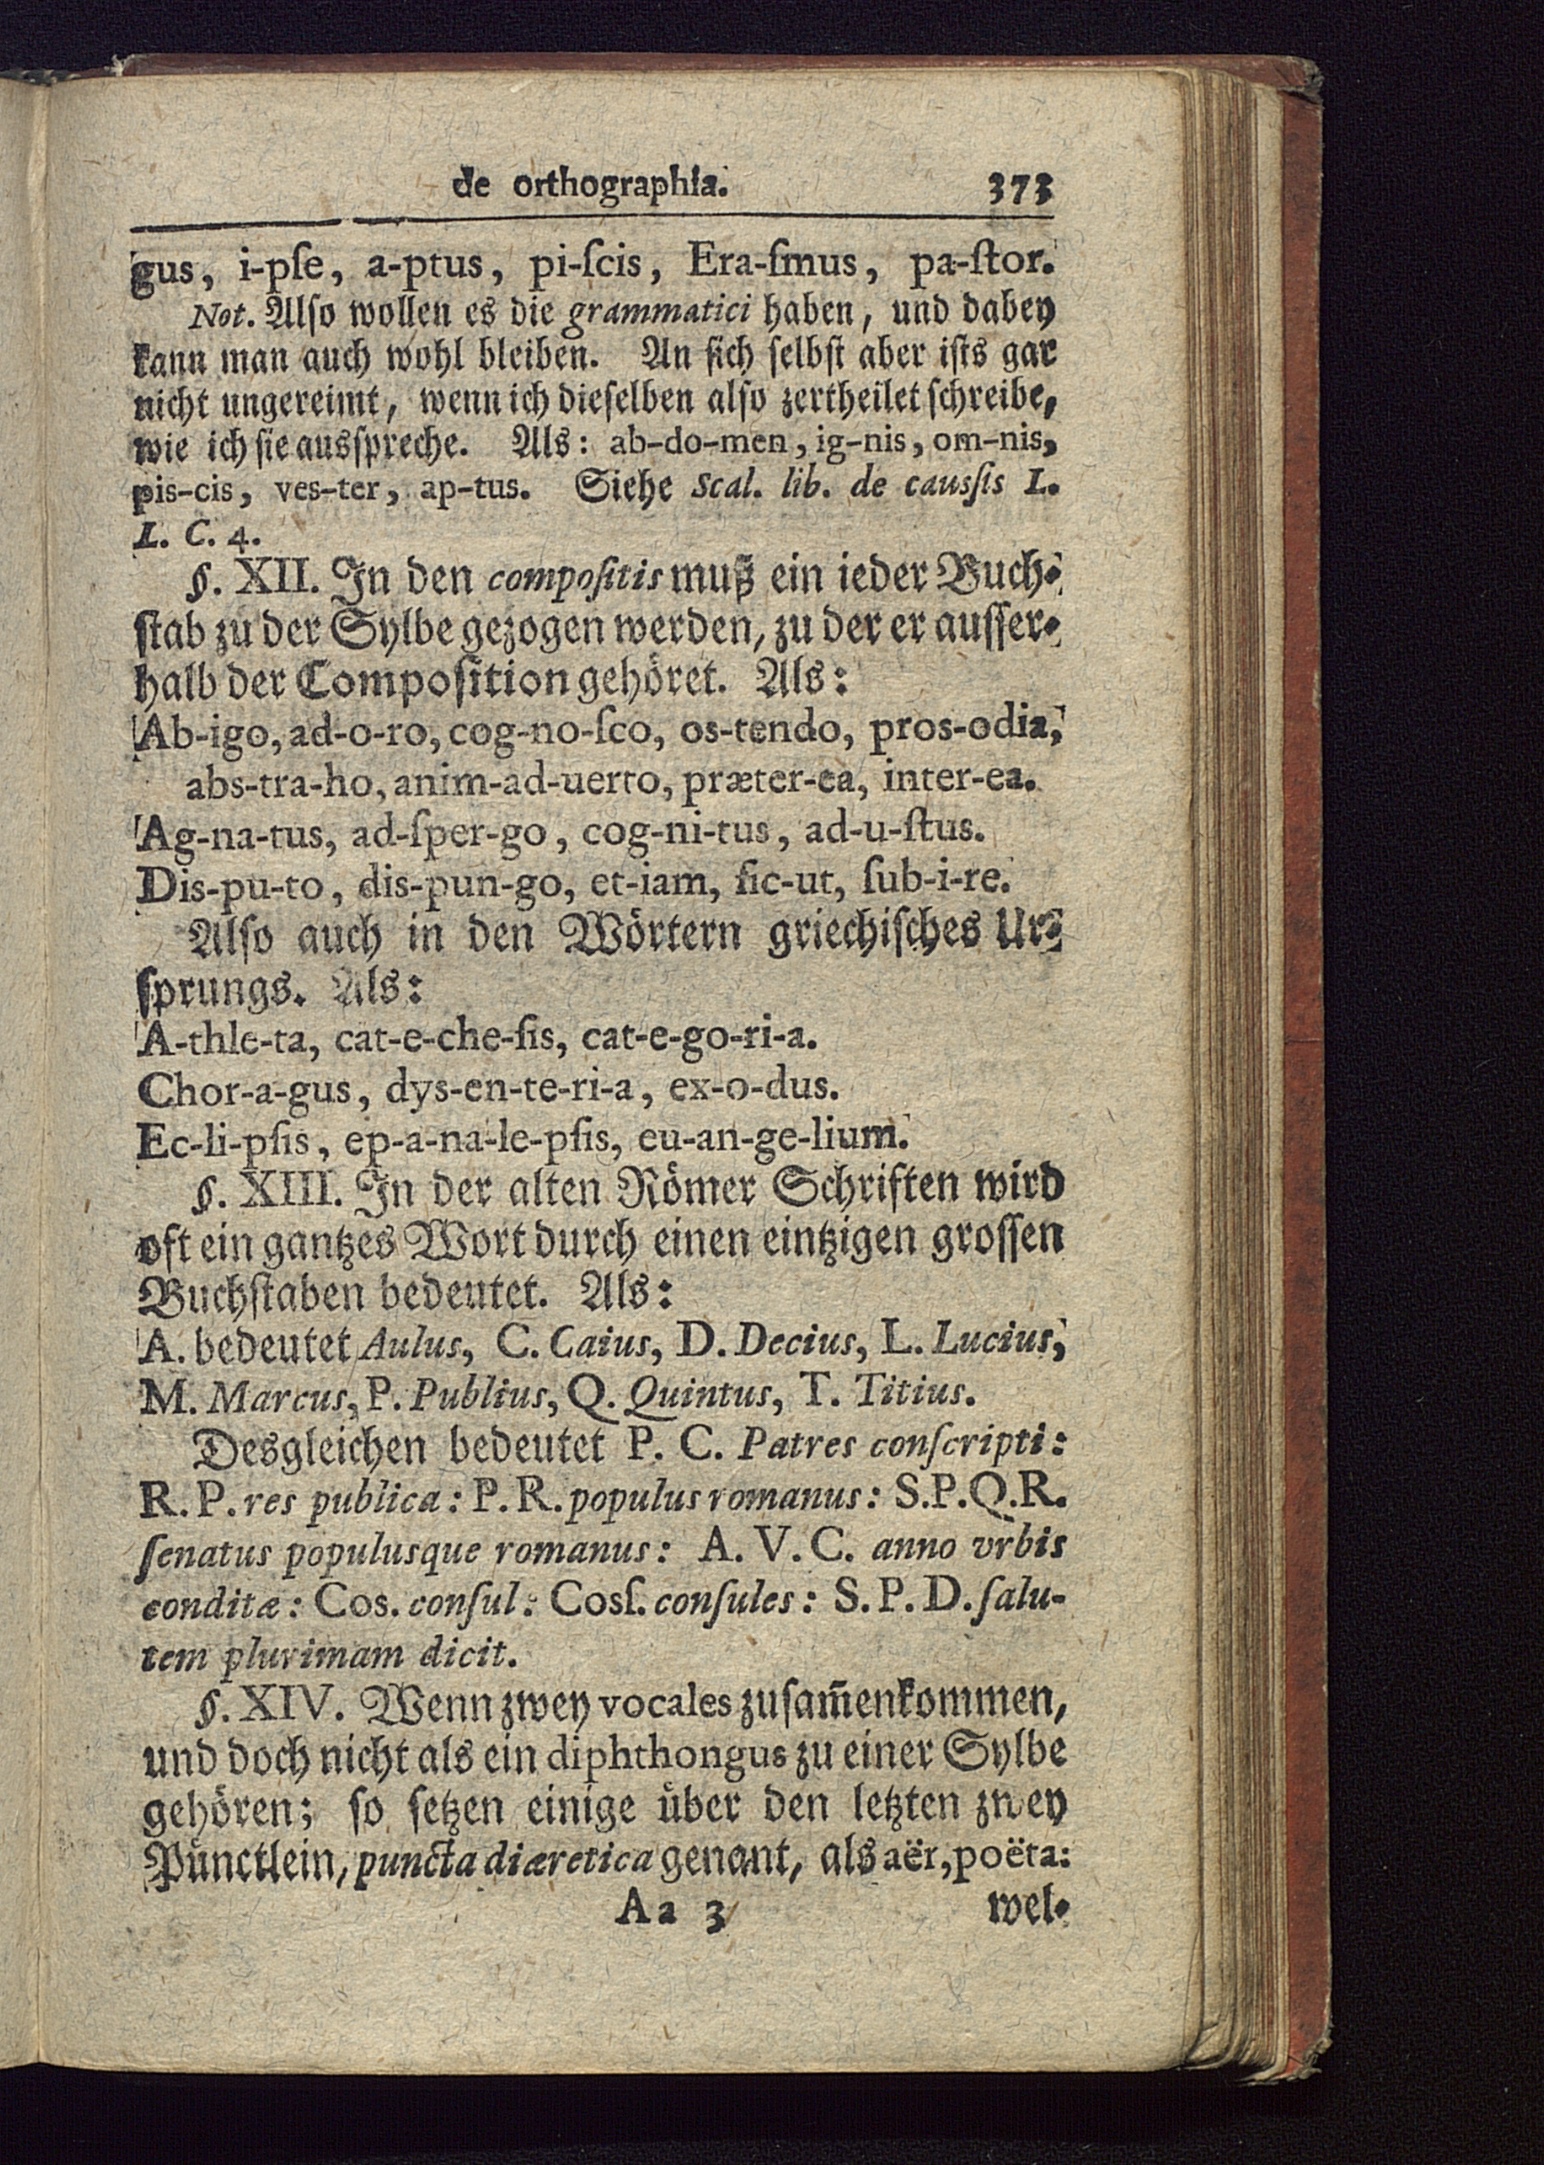 de orthographia. 373
gus, i-pſe, a-ptus, pi-ſcis, Era-ſmus, pa-ſtor.
Not. Alſo wollen es die grammatici haben, und dabey
kann man auch wohl bleiben. An ſich ſelbſt aber iſts gar
nicht ungereimt, wenn ich dieſelben alſo zertheilet ſchreibe,
wie ich ſie ausſpreche. Als: ab-do-men, ig-nis, om-nis,
pis-cis, ves-ter, ap-tus. Siehe Scal. lib. de causſis L.
L. C. 4.
§. XII. In den compoſitis muß ein ieder Buch-
ſtab zu der Sylbe gezogen werden, zu der er auſſer-
halb der Compoſition gehöret. Als:
Ab-igo, ad-o-ro, cog-no-ſco, os-tendo, pros-odia,
abs-tra-ho, anim-ad-uerto, præter-ea, inter-ea.
Ag-na-tus, ad-ſper-go, cog-ni-tus, ad-u-ſtus.
Dis-pu-to, dis-pun-go, et-iam, ſic-ut, ſub-i-re.
Alſo auch in den Wörtern griechiſches Ur-
ſprungs. Als:
A-thle-ta, cat-e-che-ſis, cat-e-go-ri-a.
Chor-a-gus, dys-en-te-ri-a, ex-o-dus.
Ec-li-pſis, ep-a-na-le-pſis, eu-an-ge-lium.
§. XIII. In der alten Römer Schriften wird
oft ein gantzes Wort durch einen eintzigen groſſen
Buchſtaben bedeutet. Als:
A. bedeutet Aulus, C. Caius, D. Decius, L. Lucius,
M. Marcus, P. Publius, Q. Quintus, T. Titius.
Desgleichen bedeutet P. C. Patres conſcripti:
R. P. res publica: P. R. populus romanus: S.P.Q.R.
ſenatus populusque romanus: A. V. C. anno vrbis
conditæ: Cos. conſul: Cosſ. conſules: S. P. D. ſalu-
tem plurimam dicit.
§. XIV. Wenn zwey vocales zuſam̄enkommen,
und doch nicht als ein diphthongus zu einer Sylbe
gehören; ſo ſetzen einige über den letzten zwey
Pünctlein, puncta diæretica genant, als aër, poëta:
Aa 3 wel-